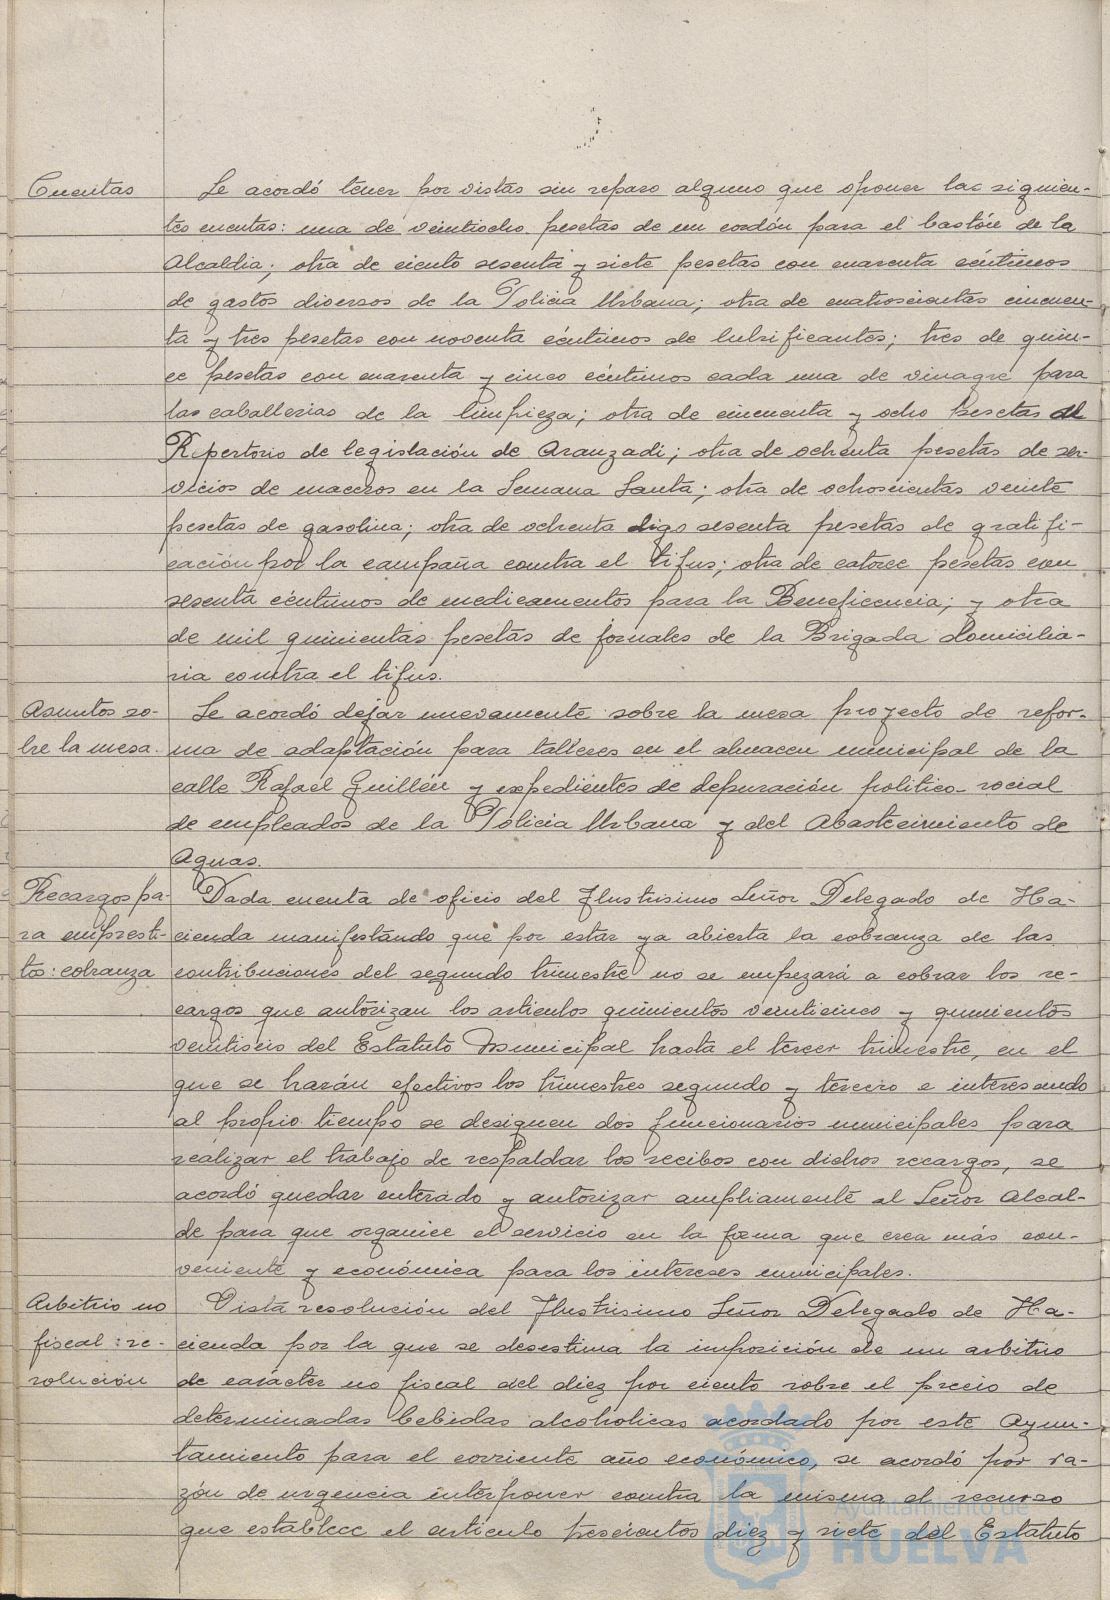 Cuentas
Se acordó tener por vistas sin reparo alguno que oponer las siguien-
tes cuentas: una de veintiocho pesetas de un cordón para el bastón de la
Alcaldia; otra de ciento sesenta y siete pesetas con cuarenta céntimos
de gastos diversos de la Policia Urbana; otra de cuatrocientas cincuen-
ta y tres pesetas con noventa céntimos de lubrificantes; tres de quin-
ce pesetas con cuarenta y cinco céntimos cada una de vinagre para
las caballerias de la limpieza; otra de cincuenta y ocho pesetas al
Repertorio de legislación de Aranzadi; otra de ochenta pesetas de ser-
vicios de maceros en la Semana Santa; otra de ochocientas veinte
pesetas de gasolina; otra de ochenta digo sesenta pesetas de gratifi-
cación por la campaña contra el tifus; otra de catorce pesetas con
sesenta céntimos de medicamentos para la Beneficencia; y otra
de mil quinientas pesetas de jornales de la Brigada domicilia-
ria contra el tifus.
Asuntos so-
bre la mesa.
Se acordó dejar nuevamente sobre la mesa proyecto de refor-
ma de adaptación para talleres en el almacen municipal de la
calle Rafael Guillén y expedientes de depuración politico-social
de empleados de la Policia Urbana y del Abastecimiento de
Aguas.
Recargos pa-
ra emprésti-
tos: cobranza
Dada cuenta de oficio del Ilustrisimo Señor Delegado de Ha-
cienda manifestando que por estar ya abierta la cobranza de las
contribuciones del segundo trimestre no se empezará a cobrar los re-
cargos que autorizan los articulos quinientos veinticinco y quinientos
veintiseis del Estatuto Municipal hasta el tercer trimestre, en el
que se harán efectivos los trimestres segundo y tercero e interesando
al propio tiempo se designen dos funcionarios municipales para
realizar el trabajo de respaldar los recibos con dichos recargos, se
acordó quedar enterado y autorizar ampliamente al Señor Alcal-
de para que organice el servicio en la forma que crea más con-
veniente y económica para los intereses municipales.
Arbitrio no
fiscal: re-
solución
Vista resolución del Ilustrisimo Señor Delegado de Ha-
cienda por la que se desestima la imposición de un arbitrio
de carácter no fiscal del diez por ciento sobre el precio de
determinadas bebidas alcoholicas acordado por este Ayun-
tamiento para el corriente año económico, se acordó por ra-
zón de urgencia interponer contra la misma el recurso
que establece el articulo trescientos diez y siete del Estatuto
Ayuntamiento de
HUELVA